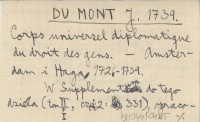 DU MONT J. 1739.
Corps universel diplomatique
du droit des gens. – Amster-
dam i Haga 1726-1739.
W Supplement do tego
dzieła (tom II, cz. 2: 331), opraco-